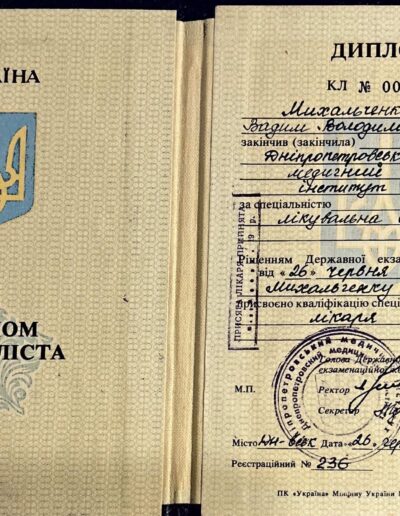 АЇНА
ОМ
ЛІСТА
ДИПЛО
КЛ № 00
Михальченк
Вадим Володим
закінчив (закінчила)
Дніпропетровськ
медичний
інститут
за спеціальністю
лікувальна с
Рішенням Державної екза
від «26» червня
Михальченку
присвоєно кваліфікацію спеці
лікаря
ПРИСЯГА ЛІКАРЯ ПРИЙНЯТА
19 р.
Голова Державно
екзаменаційної ко
М.П.
Ректор
Секретар
Місто Дн-вськ Дата «26» чер
Реєстраційний № 236
ПК «Україна» Мінфіну України